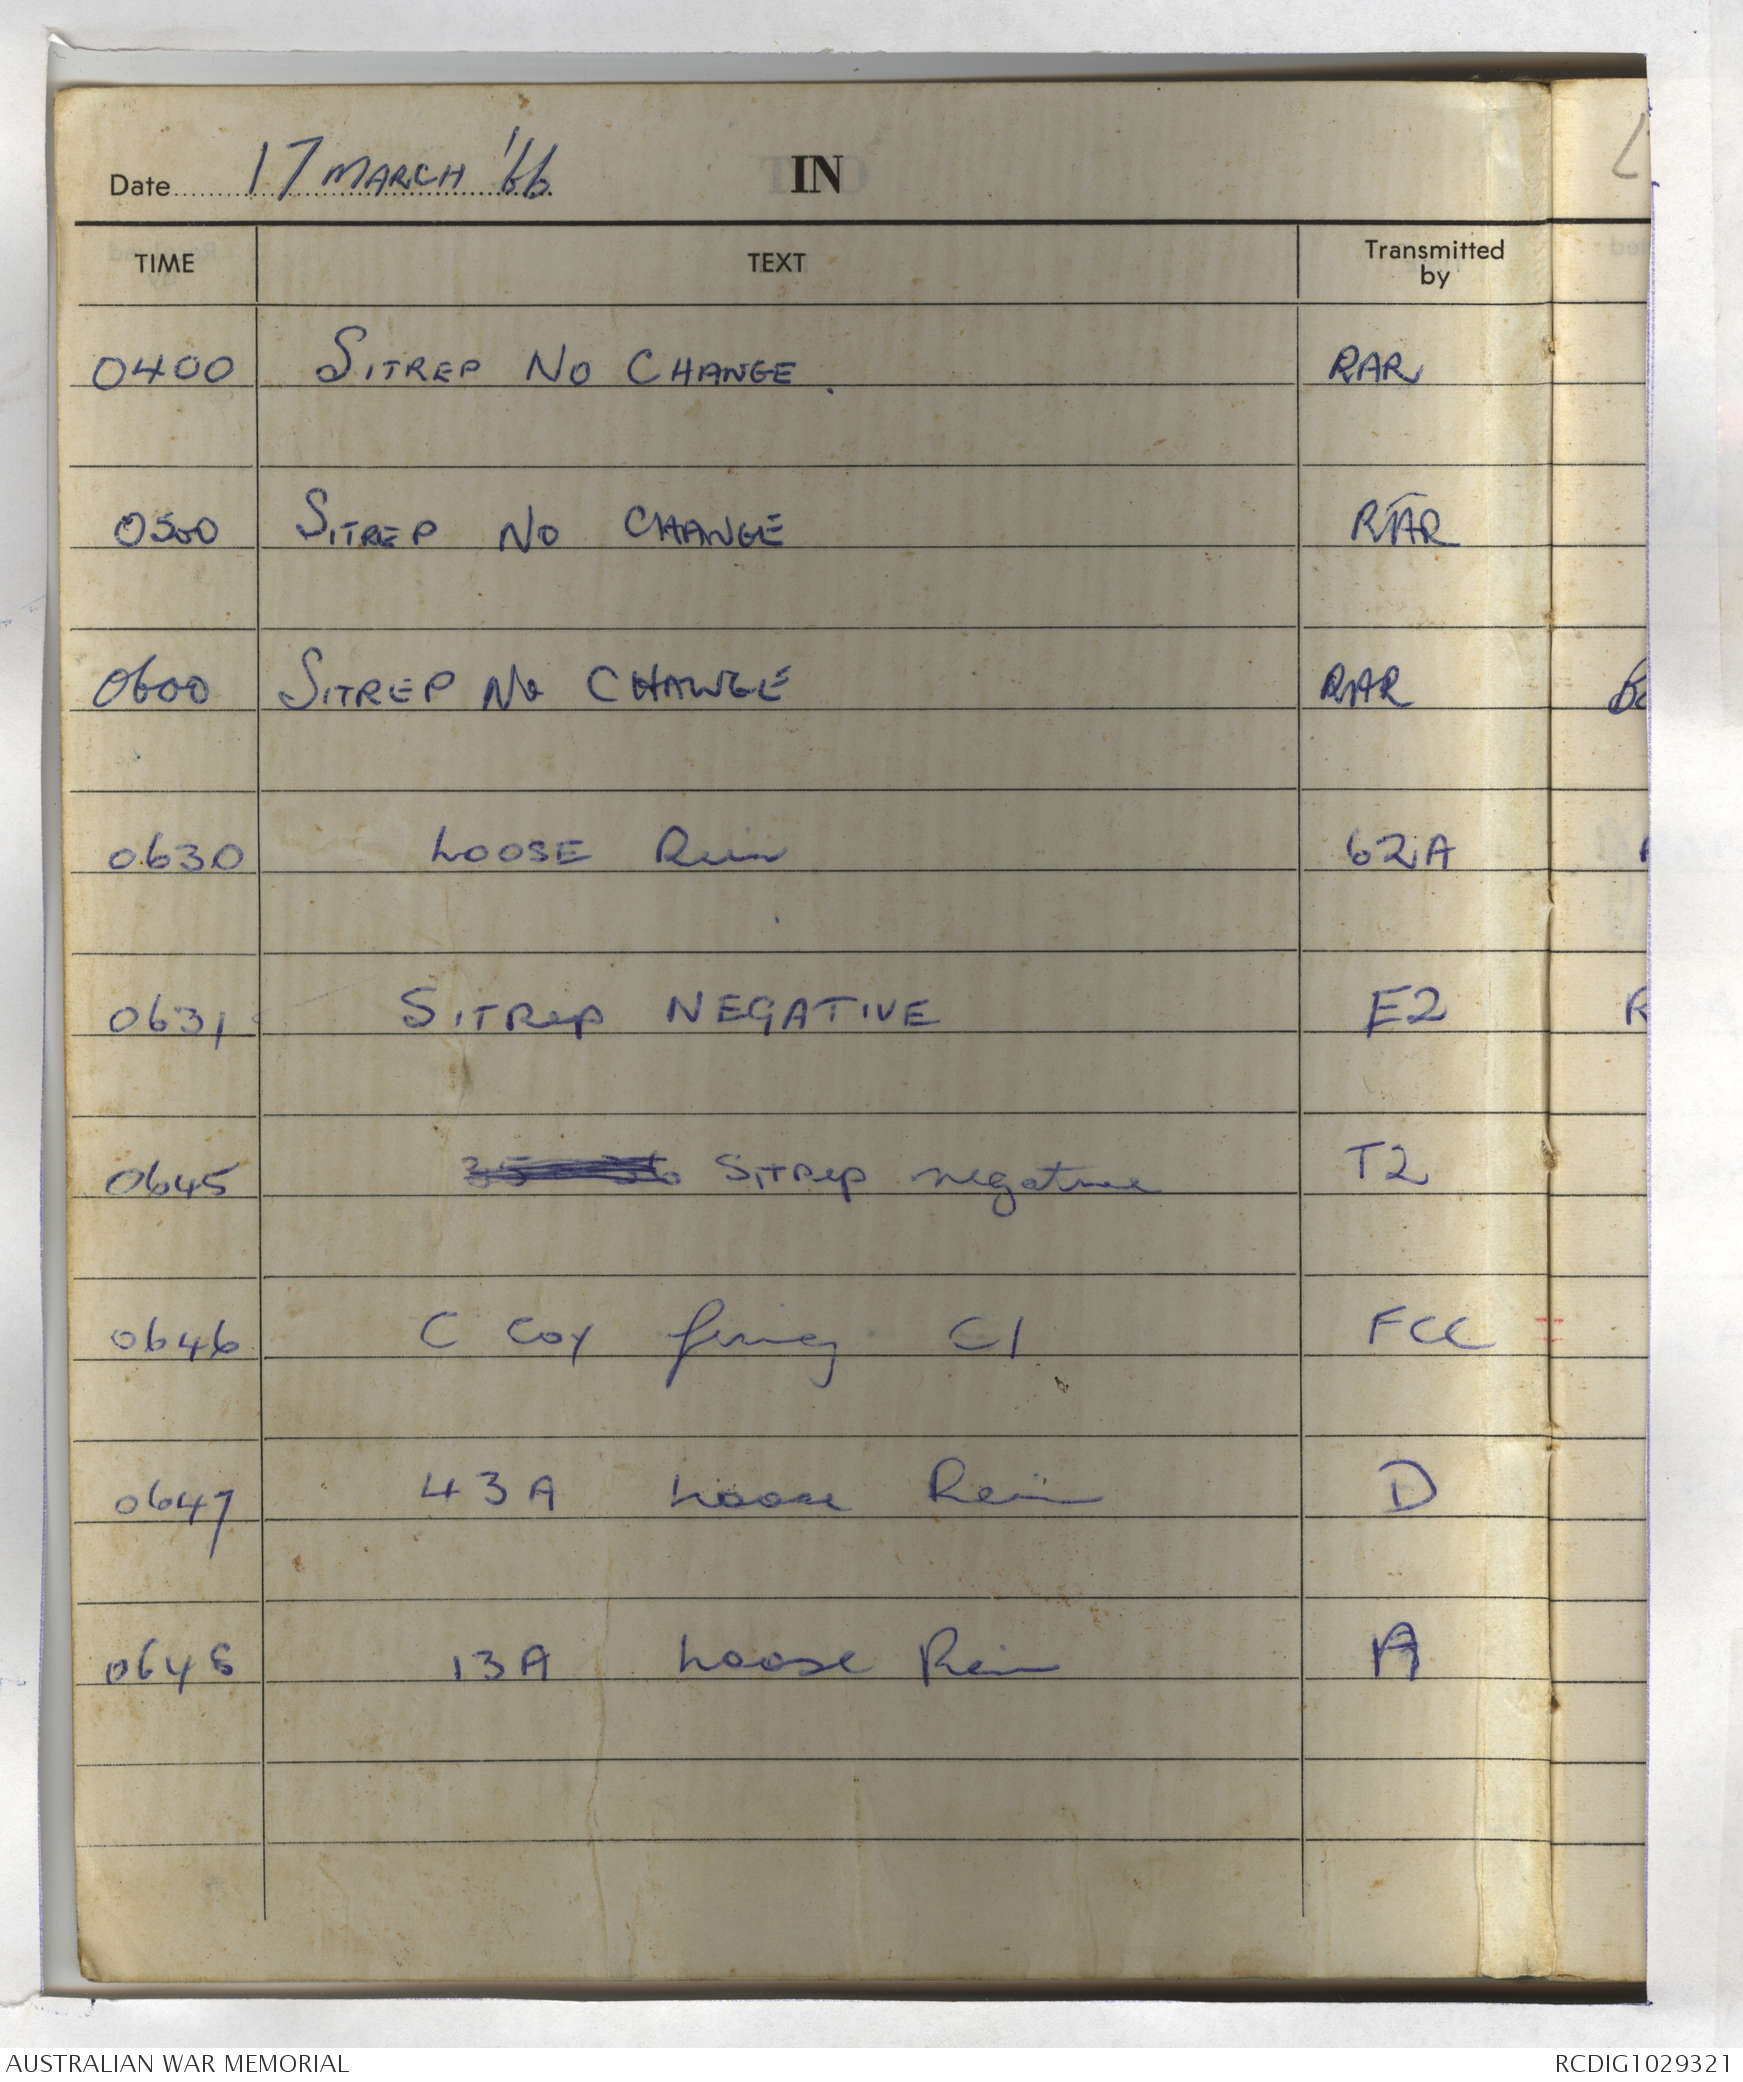 Date 17 MARCH '66 IN
TIME TEXT Transmitted by
0400 SITREP NO CHANGE. RAR
0500 SITREP NO CHANGE RAR
0600 SITREP NO CHANGE RAR
0630 LOOSE Rein 62A
0631 SITRep NEGATIVE E2
0645 SITRep negative T2
0646 C Coy firing C1 FCC
0647 43A Loose Rein D
0648 13A Loose Rein A
AUSTRALIAN WAR MEMORIAL RCDIG1029321